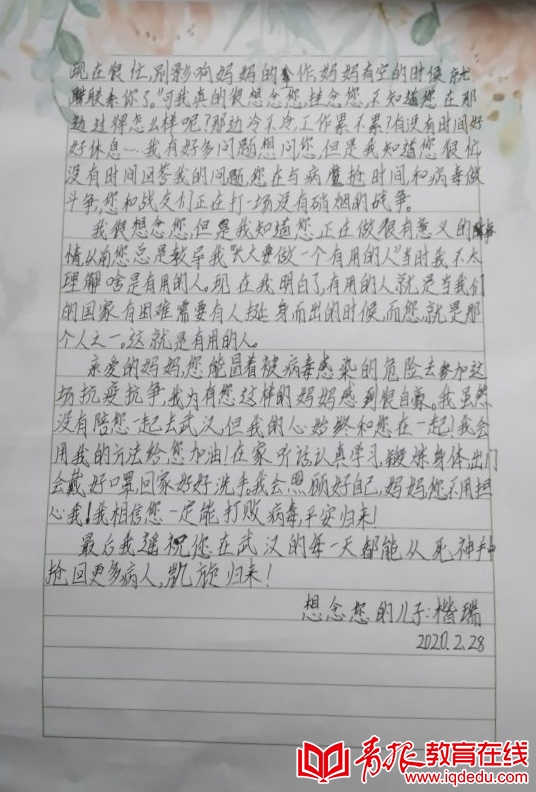 现在很忙,别影响妈妈的工作,妈妈有空的时候就
联系你了。”可我真的很想念您,挂念您,不知道您在那
边过得怎么样呢?那边冷不冷,工作累不累?有没有时间好
好休息……我有好多问题想问您,但是我知道您很忙
没有时间回答我的问题,您在与病魔抢时间,和病毒做
斗争,您和战友们正在打一场没有硝烟的战争。
我很想念您,但是我知道您正在做很有意义的事
情以前您总是教导我“长大要做一个有用的人”当时我不太
理解啥是有用的人。现在我明白了,有用的人就是当我们
的国家有困难需要有人挺身而出的时候,而您,就是那
个人之一。这就是有用的人。
亲爱的妈妈,您能冒着被病毒感染的危险去参加这
场抗疫抗争,我为有您这样的妈妈感到很自豪。我虽然
没有陪您一起去武汉,但我的心始终和您在一起!我会
用我的方法给您加油!在家听话认真学习,锻炼身体出门
会戴好口罩,回家好好洗手。我会照顾好自己,妈妈您不用担
心我!我相信您一定能打败病毒,平安归来!
最后我遥祝你在武汉的每一天都能从死神手中
抢回更多病人,凯旋归来!
想念您的儿子:楷瑞
2020.2.28
青报教育在线
www.iqdedu.com